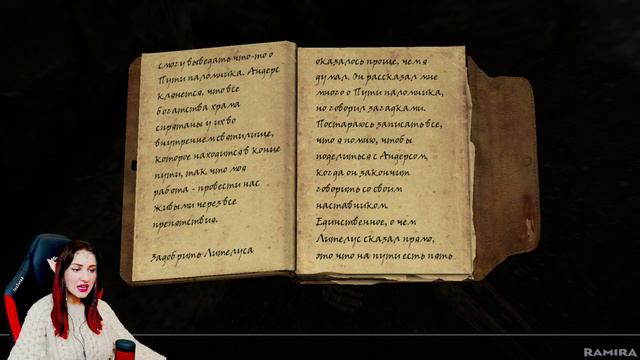 смогу выведать что-то о
Пути паломника. Андерс
клянется, что все
богатства храма
спрятаны у их во
внутреннем святилище,
которое находится в конце
пути, так что моя
работа - провести нас
живыми через все
препятствия.
Задобрить Лителуса
оказалось проще, чем я
думал. Он рассказал мне
много о Пути паломника,
но говорил загадками.
Постараюсь записать все,
что я помню, чтобы
поделиться с Андерсом,
когда он закончит
говорить со своим
наставником.
Единственное, о чем
Лителус сказал прямо,
это что на пути есть пять
RAMIRA